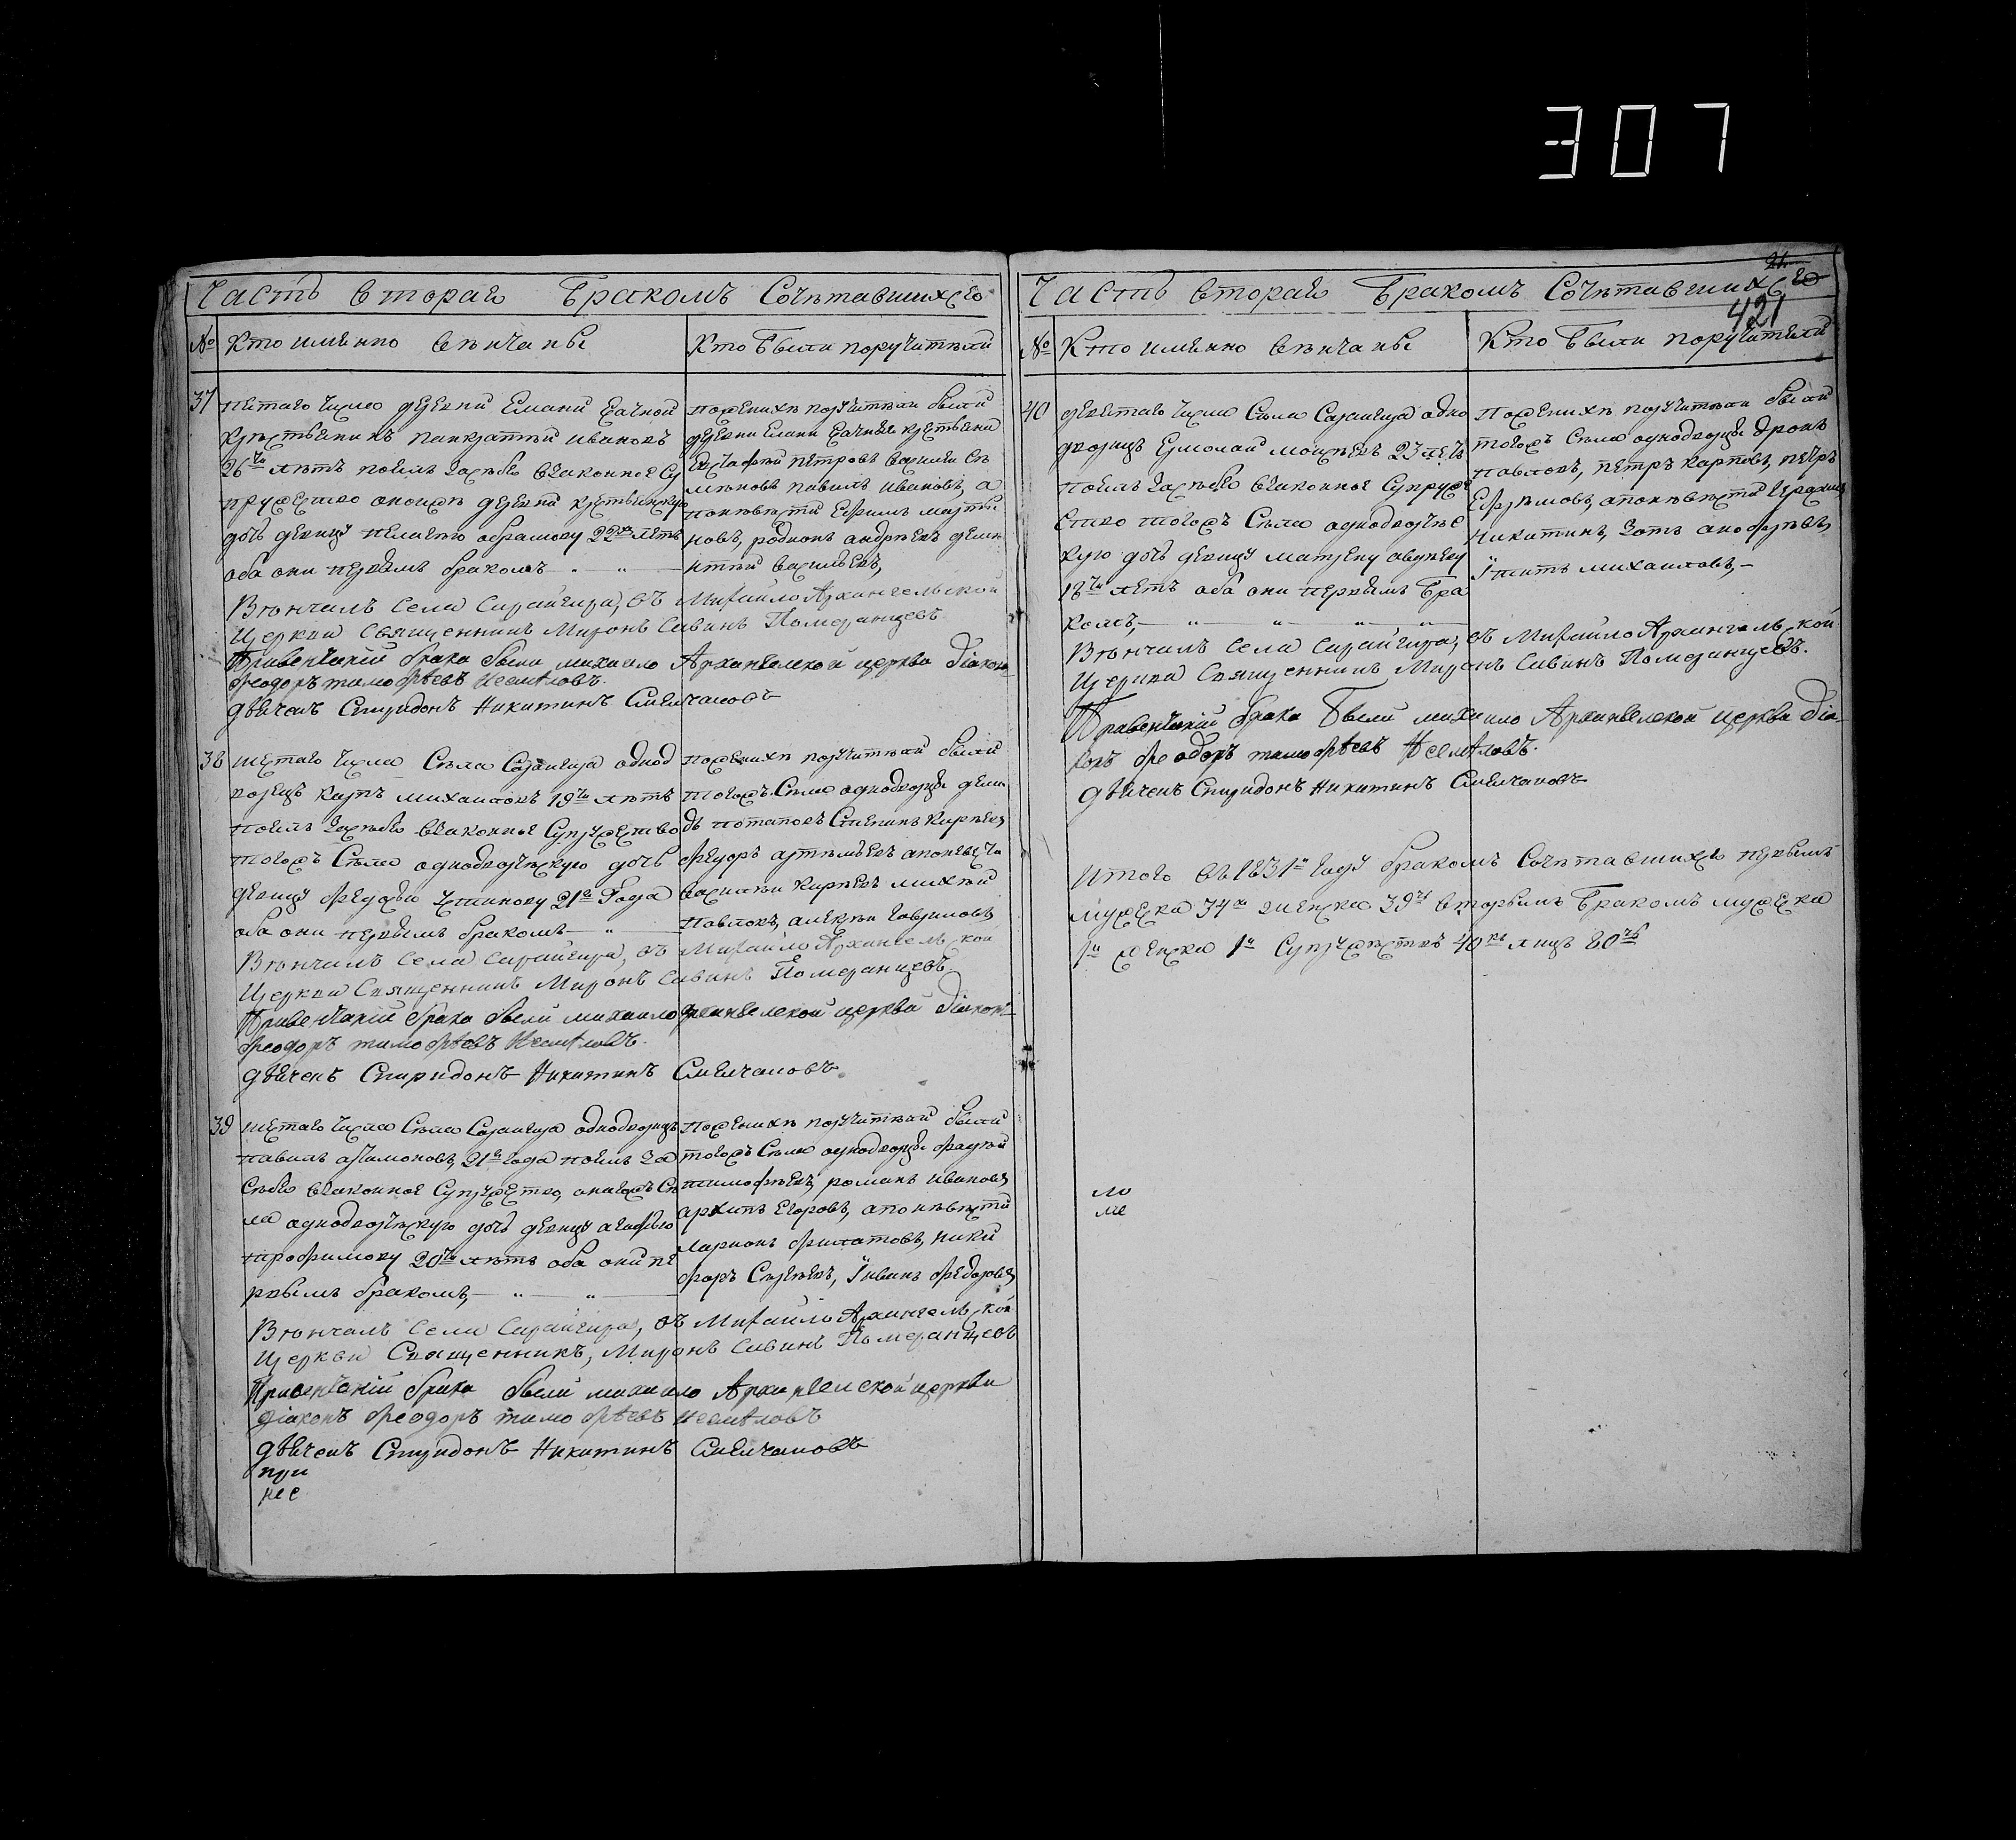 307
Часть вторая Бракомъ Сочѣтавшихся
№ Кто именно вѣнчаны Кто были поручитѣли
37 пятаго числа деревни Елани
крестьянинъ панкратий ивановъ
26ти лѣтъ поялъ засѣбя взаконное су
пружество оноижъ деревни
дочь девицу пелагею абрамову 22хъ лѣтъ
оба они первымъ бракомъ
поженихѣ поручитѣли были
деревни Елани крестьяни
Евстафий пѣтровъ василей се
меновъ павилъ ивановъ, а
поневѣсти Ефимъ марты
новъ, родионъ андрѣевъ деме
нтий васильевъ,
Вѣнчалъ села Сарайгира, въ Михайло Архангельской
Церкви Священникъ Миронъ Савинъ Померанцевъ
Привенчании брака были михаило Архангелской церкви діаконъ
феодоръ тимофѣевъ Несмѣловъ.
дьячекъ Спиридонъ Никитинъ Смелчаковъ
38 шестаго числа Села Сараигира однод
ворецъ карпъ михаиловъ 19ти лѣтъ
поялъ засѣбя взаконное Супружество
тогожъ Села однодворческую дочь
девицу устинову 21го Года
оба они первымъ бракомъ
поженихѣ поручитѣли были
тогожъ Села однодворцы деми
дъ потаповъ Степанъ Кирѣевъ
федоръ артемьевъ апоневести
василеи кирѣевъ михѣи
павловъ, алексѣи гавриловъ,
Вѣнчалъ Села Сарайгира, въ Михайло Архангельской
Церкви Священникъ Миронъ Савинъ Померанцевъ
Привенчании брака были михаило архангелской церкви діаконъ
феодоръ тимофѣевъ Несмѣловъ.
дьячекъ Спиридонъ Никитинъ Смелчаковъ
39 шестаго числа Села Сараигира однодворецъ
павилъ 21го года поялъ за
сѣбя взаконное Супружество, оногожъ Се
ла однодворческую дочь девицу агафью
трофимову 20ти лѣтъ оба они пе
рвымъ бракомъ,
поженихѣ поручитѣли были
тогожъ Села однодворцы фадѣи
тимофѣевъ, романъ ивановъ,
архипъ Егоровъ, апоневѣсти
ларионъ филатовъ, ники
форъ Сергѣевъ, иванъ федоровъ,
Вѣнчалъ Села Сарайгира, въ Михайло Архангельской
Церкви Священникъ, Миронъ Савинъ Померанцевъ
Привенчании брака были михаило Архангелской церкви
діаконъ феодоръ тимофѣевъ несмѣловъ
дьячекъ Спиридонъ Никитинъ Смелчаковъ
при
не
421
Часть вторая Бракомъ Сочѣтавшихся
№ Кто именно вѣнчаны Кто были поручитѣли
40 девятаго числа Села Сараигира одно
дворецъ Ермолай 23 лѣтъ
поялъ засѣбя взаконное Супруже
ство тогожъ Села однодворчес
кую дочь девицу матрену авдѣеву
18ти лѣтъ оба они первымъ Бра
комъ,
поженихѣ поручитѣли были
тогожъ Села однодворцы дронъ
павловъ, пѣтръ карповъ, пѣтръ
Ефрѣмовъ, апоневѣсти
Никитинъ, зотъ анофрѣевъ,
титъ михаиловъ,
Вѣнчалъ Села Сарайгира, въ Михайло Архангельской
Церкви Священникъ Миронъ Савинъ Померанцевъ.
Привенчании брака были михаило Архангелской церкви діа-
конъ феодоръ тимофѣевъ Несмѣловъ.
дьячекъ Спиридонъ Никитинъ Смелчаковъ
Итого въ 1831мъ году бракомъ Сочѣтавшихся первымъ
мужеска 34 женска 39 вторымъ Бракомъ мужеска
1 женска 1 Супружествъ 40 лицъ 80
ло
ме